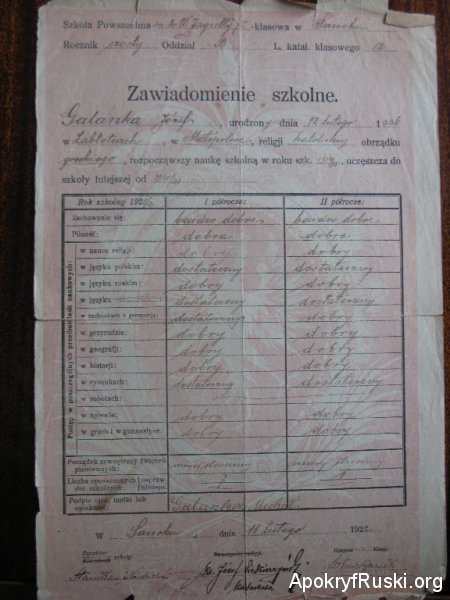 Szkoła Powszechna im. Wł. Jagiełły -klasowa w Sanoku
Rocznik szósty Oddział B L. katal. klasowego
Zawiadomienie szkolne.
Galańka Józef, urodzony dnia 12 lutego 1906
w , w Małopolsce, religji katolickiej obrządku
greckiego, rozpocząwszy naukę szkolną w roku szk. uczęszcza do
szkoły tutejszej od
Rok szkolny 1921/2 I półrocze: II półrocze:
Zachowanie się: bardzo dobre bardzo dobre
Pilność: dobra dobra
Postęp w poszczególnych przedmiotach naukowych:
w nauce religji: dobry dobry
w języku polskim: dostateczny dostateczny
w języku ruskim: dobry dobry
w języku dostateczny dostateczny
w rachunkach z geometrją: dostateczny dobry
w przyrodzie: dobry dobry
w geografji: dobry dobry
w historji: dobry dobry
w rysunkach: dostateczny dostateczny
w robotach:
w śpiewie: dobry dobry
w grach i w gimnastyce: dobry dobry
Porządek zewnętrzny ćwiczeń piśmiennych: mniej staranny mniej staranny
Liczba opuszczonych dni szkolnych
Podpis ojca, matki lub opiekuna: Galańka
W Sanoku, dnia 11 lutego 1922
Dyrektor szkoły. Nauczyciel religji: klasy:
Stanisław Ks. Józef
ApokryfRuski.org